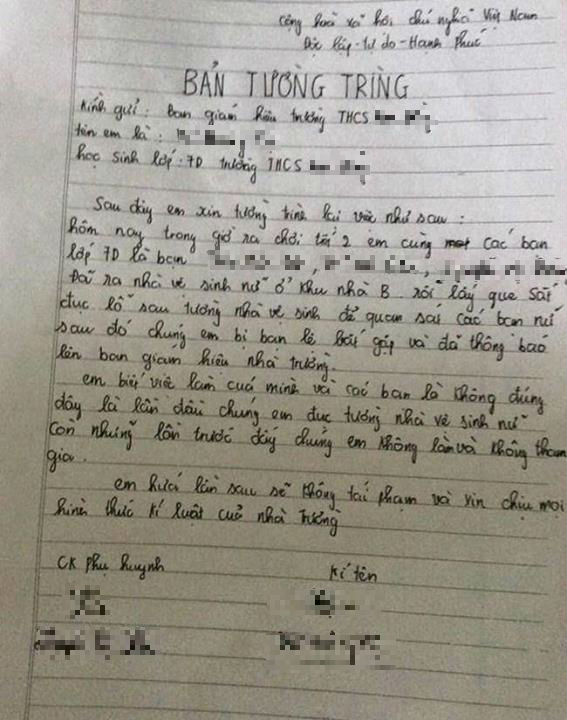 Cộng hoà xã hội chủ nghĩa Việt Nam
Độc lập - tự do - Hạnh Phúc
BẢN TƯỜNG TRÌNG
Kính gửi: Ban giám hiệu trường THCS
tên em là:
học sinh lớp: 7D trường THCS
Sau đây em xin tường trình lại việc như sau:
hôm nay trong giờ ra chơi tiết 2 em cùng các bạn
lớp 7D là bạn
Đã ra nhà vệ sinh nữ ở khu nhà B. rồi lấy que sắt
đục lỗ sau tường nhà vệ sinh để quan sát các bạn nữ
sau đó chúng em bị bạn lê bắt gặp và đã thông báo
lên ban giám hiệu nhà trường.
em biết việc làm của mình và các bạn là không đúng
đây là lần đầu chúng em đục tường nhà vệ sinh nữ
còn những lần trước đấy chúng em không làm và không tham
gia.
em hứa lần sau sẽ không tái phạm và xin chịu mọi
hình thức kỉ luật của nhà trường
CK phụ huynh
Kí tên